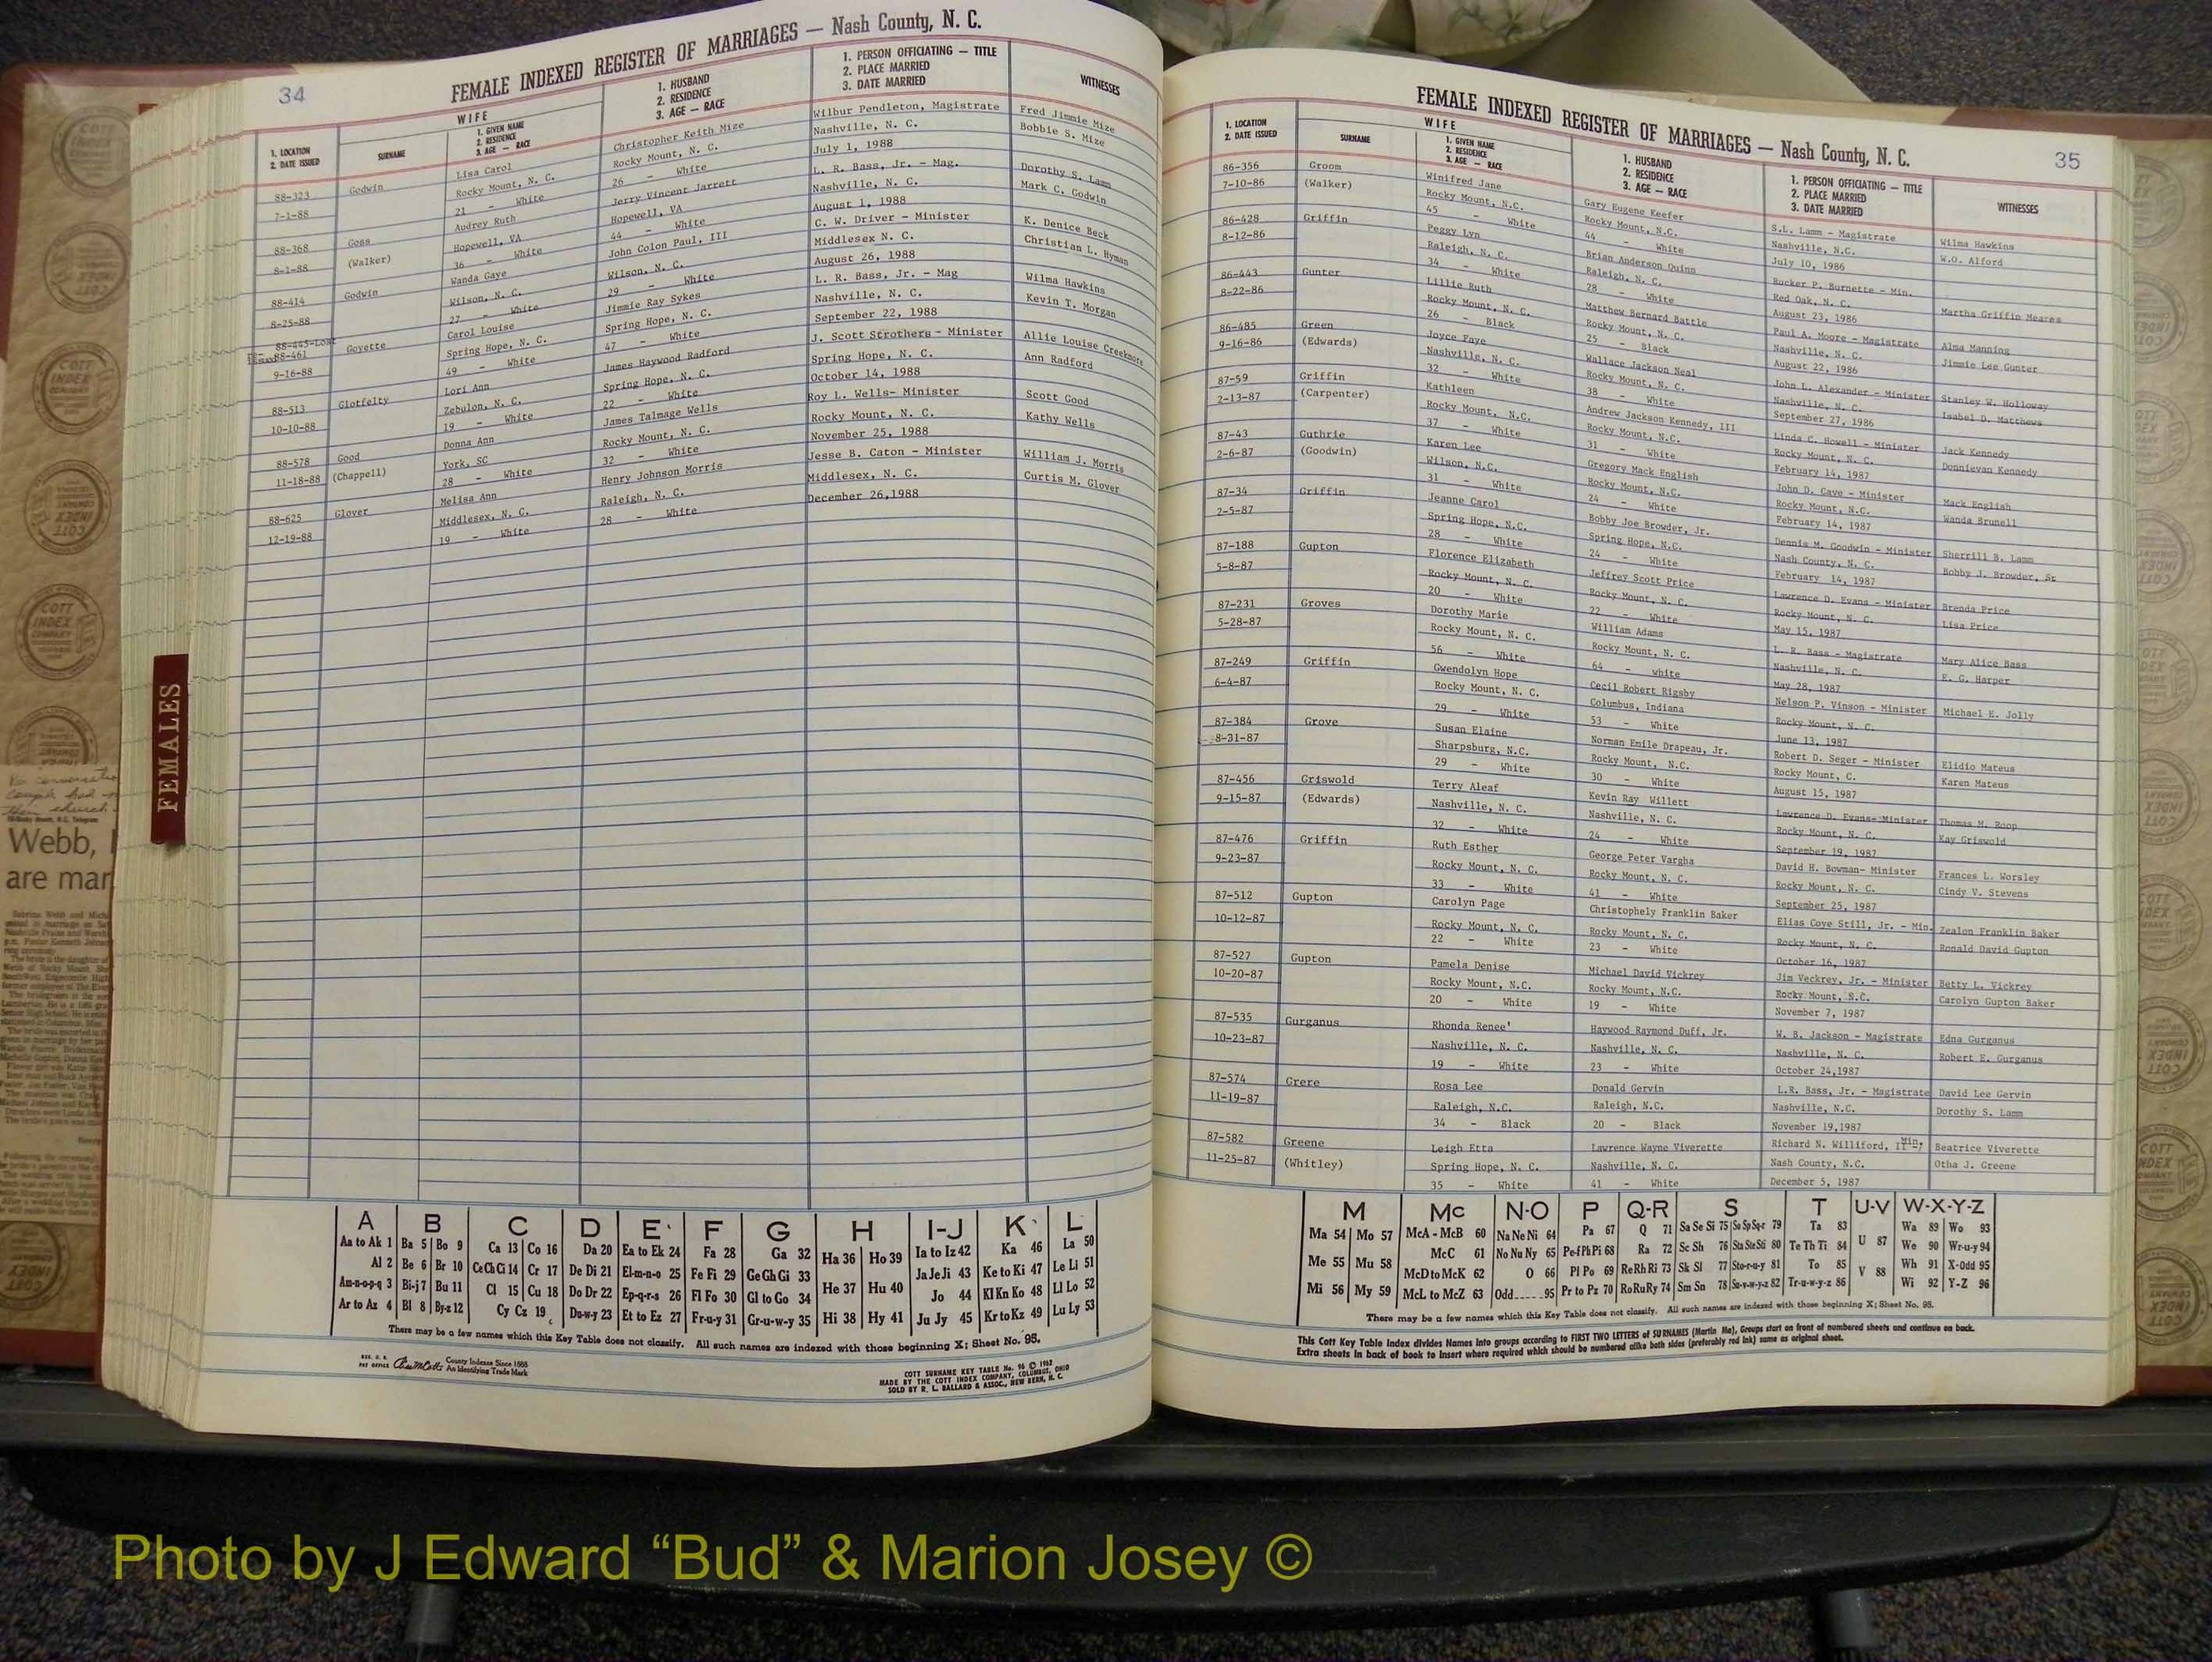 34
FEMALE INDEXED REGISTER OF MARRIAGES — Nash County, N. C.
1. LOCATION
2. DATE ISSUED
WIFE
SURNAME
1. GIVEN NAME
2. RESIDENCE
3. AGE — RACE
1. HUSBAND
2. RESIDENCE
3. AGE — RACE
1. PERSON OFFICIATING — TITLE
2. PLACE MARRIED
3. DATE MARRIED
WITNESSES
88-323 Godwin Lisa Carol Christopher Keith Mize Wilbur Pendleton, Magistrate Fred Jimmie Mize
7-1-88 Rocky Mount, N. C. Rocky Mount, N. C. Nashville, N. C. Bobbie S. Mize
21 - White 26 - White July 1, 1988
88-368 Goss Audrey Ruth Jerry Vincent Jarrett L. R. Bass, Jr. - Mag. Dorothy S. Lamm
8-1-88 (Walker) Hopewell, VA Hopewell, VA Nashville, N. C. Mark C. Godwin
36 - White 44 - White August 1, 1988
88-414 Godwin Wanda Gaye John Colon Paul, III C. W. Driver - Minister K. Denice Beck
8-25-88 Wilson, N. C. Wilson, N. C. Middlesex N. C. Christian L. Hyman
27 - White 29 - White August 26, 1988
88-445-Lost
88-461 Goyette Carol Louise Jimmie Ray Sykes L. R. Bass, Jr. - Mag Wilma Hawkins
9-16-88 Spring Hope, N. C. Spring Hope, N. C. Nashville, N. C. Kevin T. Morgan
49 - White 47 - White September 22, 1988
88-513 Glotfelty Lori Ann James Haywood Radford J. Scott Strothers - Minister Allie Louise Creekmore
10-10-88 Zebulon, N. C. Spring Hope, N. C. Spring Hope, N. C. Ann Radford
19 - White 22 - White October 14, 1988
88-578 Good Donna Ann James Talmage Wells Roy L. Wells- Minister Scott Good
11-18-88 (Chappell) York, SC Rocky Mount, N. C. Rocky Mount, N. C. Kathy Wells
28 - White 32 - White November 25, 1988
88-625 Glover Melisa Ann Henry Johnson Morris Jesse B. Caton - Minister William J. Morris
12-19-88 Middlesex, N. C. Raleigh, N. C. Middlesex, N. C. Curtis M. Glover
19 - White 28 - White December 26,1988
FEMALES
Webb,
are mar
A B C D E F G H I-J K L
Aa to Ak 1 Ba 5 Bo 9 Ca 13 Co 16 Da 20 Ea to Ek 24 Fa 28 Ga 32 Ha 36 Ho 39 Ia to Iz 42 Ka 46 La 50
Al 2 Be 6 Br 10 Ce Ch Ci 14 Cr 17 De Di 21 El-m-n-o 25 Fe Fi 29 Ge Gh Gi 33 He 37 Hu 40 Ja Je Ji 43 Ke to Ki 47 Le Li 51
Am-n-o-p-q 3 Bi-j 7 Bu 11 Cl 15 Cu 18 Do Dr 22 Ep-q-r-s 26 Fl Fo 30 Gl to Go 34 Hi 38 Hy 41 Jo 44 Kl Kn Ko 48 Ll Lo 52
Ar to Az 4 Bl 8 By-z 12 Cy Cz 19 Du-w-y 23 Et to Ez 27 Fr-u-y 31 Gr-u-w-y 35 Ju Jy 45 Kr to Kz 49 Lu Ly 53
There may be a few names which this Key Table does not classify. All such names are indexed with those beginning X; Sheet No. 95.
County Indexes Since 1888
An Identifying Trade Mark
COTT SURNAME KEY TABLE No. 96 © 1962
MADE BY THE COTT INDEX COMPANY, COLUMBUS, OHIO
SOLD BY R. L. BALLARD & ASSOC., NEW BERN, N. C.
FEMALE INDEXED REGISTER OF MARRIAGES — Nash County, N. C.
35
1. LOCATION
2. DATE ISSUED
WIFE
SURNAME
1. GIVEN NAME
2. RESIDENCE
3. AGE — RACE
1. HUSBAND
2. RESIDENCE
3. AGE — RACE
1. PERSON OFFICIATING — TITLE
2. PLACE MARRIED
3. DATE MARRIED
WITNESSES
86-356 Groom Winifred Jane Gary Eugene Keefer S.L. Lamm - Magistrate Wilma Hawkins
7-10-86 (Walker) Rocky Mount, N.C. Rocky Mount, N.C. Nashville, N.C. W.O. Alford
45 - White 44 - White July 10, 1986
86-428 Griffin Peggy Lyn Brian Anderson Quinn Rucker P. Burnette - Min. Martha Griffin Meares
8-12-86 Raleigh, N. C. Raleigh, N. C. Red Oak, N. C.
34 - White 28 - White August 23, 1986
86-443 Gunter Lillie Ruth Matthew Bernard Battle Paul A. Moore - Magistrate Alma Manning
8-22-86 Rocky Mount, N. C. Rocky Mount, N. C. Nashville, N. C. Jimmie Lee Gunter
26 - Black 25 - Black August 22, 1986
86-485 Green Joyce Faye Wallace Jackson Neal John L. Alexander - Minister Stanley W. Holloway
9-16-86 (Edwards) Nashville, N. C. Rocky Mount, N. C. Nashville, N. C. Isabel D. Matthews
32 - White 38 - White September 27, 1986
87-59 Griffin Kathleen Andrew Jackson Kennedy, III Linda C. Howell - Minister Jack Kennedy
2-13-87 (Carpenter) Rocky Mount, N.C. Rocky Mount, N.C. Rocky Mount, N.C. Donnievan Kennedy
37 - White 31 - White February 14, 1987
87-43 Guthrie Karen Lee Gregory Mack English John D. Cave - Minister Mack English
2-6-87 (Goodwin) Wilson, N.C. Rocky Mount, N.C. Rocky Mount, N.C. Wanda Brunell
31 - White 24 - White February 14, 1987
87-34 Griffin Jeanne Carol Bobby Joe Browder, Jr. Dennis M. Goodwin - Minister Sherrill B. Lamm
2-5-87 Spring Hope, N.C. Spring Hope, N.C. Nash County, N. C. Bobby J. Browder, Sr
28 - White 24 - White February 14, 1987
87-188 Gupton Florence Elizabeth Jeffrey Scott Price Lawrence D. Evans - Minister Brenda Price
5-8-87 Rocky Mount, N. C. Rocky Mount, N. C. Rocky Mount, N. C. Lisa Price
20 - White 22 - White May 15, 1987
87-231 Groves Dorothy Marie William Adams L. R. Bass - Magistrate Mary Alice Bass
5-28-87 Rocky Mount, N. C. Rocky Mount, N. C. Nashville, N. C. E. G. Harper
56 - White 64 - white May 28, 1987
87-249 Griffin Gwendolyn Hope Cecil Robert Rigsby Nelson P. Vinson - Minister Michael E. Jolly
6-4-87 Rocky Mount, N. C. Columbus, Indiana Rocky Mount, N. C.
29 - White 53 - White June 13, 1987
87-384 Grove Susan Elaine Norman Emile Drapeau, Jr. Robert D. Seger - Minister Elidio Mateus
8-31-87 Sharpsburg, N.C. Rocky Mount, N.C. Rocky Mount, C. Karen Mateus
29 - White 30 - White August 15, 1987
87-456 Griswold Terry Aleaf Kevin Ray Willett Lawrence D. Evans-Minister Thomas M. Roop
9-15-87 (Edwards) Nashville, N. C. Nashville, N. C. Rocky Mount, N. C. Kay Griswold
32 - White 24 - White September 19, 1987
87-476 Griffin Ruth Esther George Peter Vargha David H. Bowman- Minister Frances L. Worsley
9-23-87 Rocky Mount, N. C. Rocky Mount, N. C. Rocky Mount, N. C. Cindy V. Stevens
33 - White 41 - White September 25, 1987
87-512 Gupton Carolyn Page Christophely Franklin Baker Elias Coye Still, Jr. - Min. Zealon Franklin Baker
10-12-87 Rocky Mount, N. C. Rocky Mount, N. C. Rocky Mount, N. C. Ronald David Gupton
22 - White 23 - White October 16, 1987
87-527 Gupton Pamela Denise Michael David Vickrey Jim Veckrey, Jr. - Minister Betty L. Vickrey
10-20-87 Rocky Mount, N.C. Rocky Mount, N.C. Rocky Mount, N.C. Carolyn Gupton Baker
20 - White 19 - White November 7, 1987
87-535 Gurganus Rhonda Renee' Haywood Raymond Duff, Jr. W. B. Jackson - Magistrate Edna Gurganus
10-23-87 Nashville, N. C. Nashville, N. C. Nashville, N. C. Robert E. Gurganus
19 - White 23 - White October 24,1987
87-574 Grere Rosa Lee Donald Gervin L.R. Bass, Jr. - Magistrate David Lee Gervin
11-19-87 Raleigh, N.C. Raleigh, N.C. Nashville, N.C. Dorothy S. Lamm
34 - Black 20 - Black November 19,1987
87-582 Greene Leigh Etta Lawrence Wayne Viverette Richard N. Williford, Min. Beatrice Viverette
11-25-87 (Whitley) Spring Hope, N. C. Nashville, N. C. Nash County, N.C. Otha J. Greene
35 - White 41 - White December 5, 1987
M Mc N-O P Q-R S T U-V W-X-Y-Z
Ma 54 Mo 57 McA - McB 60 Na Ne Ni 64 Pa 67 Q 71 Sa Se Si 75 So Sp Sq-r 79 Ta 83 U 87 Wa 89 Wo 93
Me 55 Mu 58 McC 61 No Nu Ny 65 Pe-f Ph Pi 68 Ra 72 Sc Sh 76 Sta Ste Sti 80 Te Th Ti 84 V 88 We 90 Wr-u-y 94
Mi 56 My 59 McD to McK 62 O 66 Pl Po 69 Re Rh Ri 73 Sk Sl 77 Sto-r-u-y 81 To 85 Wh 91 X-Odd 95
McL to McZ 63 Odd 95 Pr to Pz 70 Ro Ru Ry 74 Sm Sn 78 Su-v-w-y-z 82 Tr-u-w-y-z 86 Wi 92 Y-Z 96
There may be a few names which this Key Table does not classify. All such names are indexed with those beginning X; Sheet No. 95.
This Cott Key Table Index divides Names into groups according to FIRST TWO LETTERS of SURNAMES (Martin Ma), Groups start on front of numbered sheets and continue on back.
Extra sheets in back of book to insert where required which should be numbered alike both sides (preferably red ink) same as original sheet.
Photo by J Edward “Bud” & Marion Josey ©